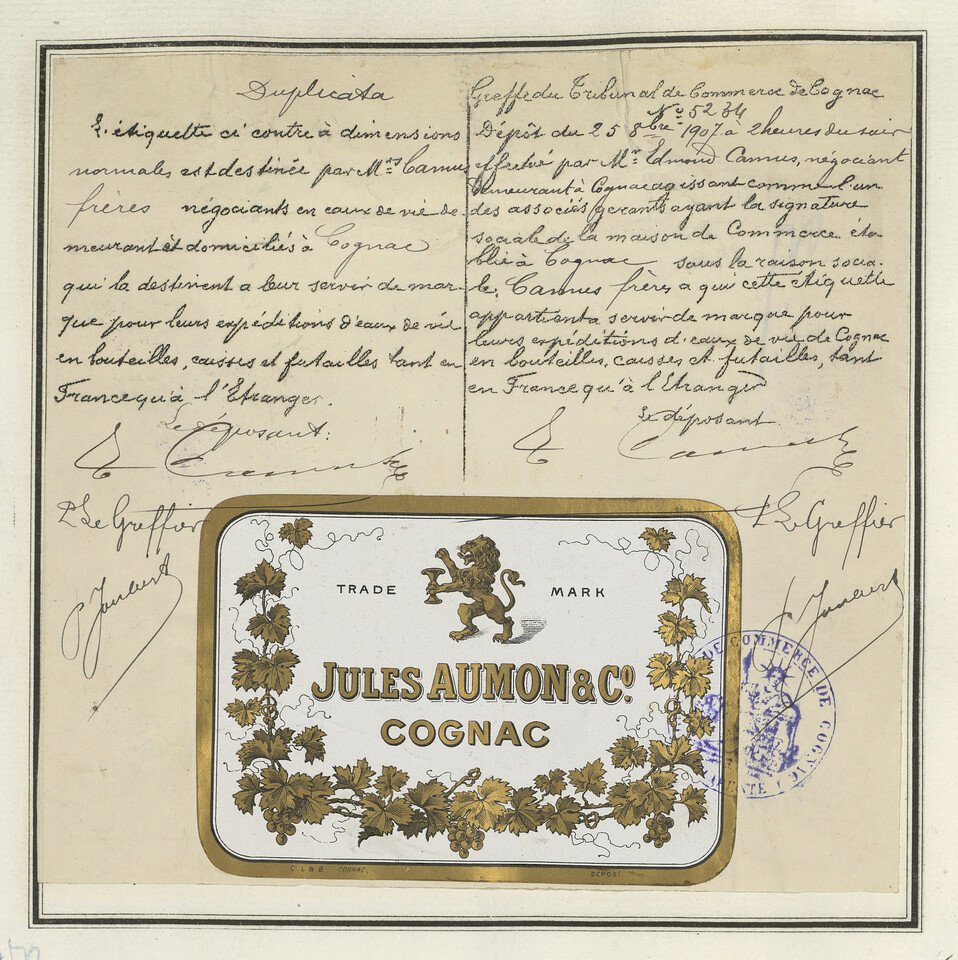 Duplicata
L'étiquette ci contre à dimensions
normales est destinée par M.rs Camus
frères négociants en eaux de vie de-
meurant et domiciliés à Cognac
qui la destinent a leur servir de mar-
que pour leurs expéditions d'eaux de vie
en bouteilles, caisses et futailles tant en
France qu'à l'Etranger.
Le déposant:
Camus
P. Le Greffier
Greffe du Tribunal de Commerce de Cognac
No. 5234
Dépôt du 25 8bre 1907 à 2 heures du soir
effectué par Mr. Edmond Camus, négociant
demeurant à Cognac agissant comme l'un
des associés gerants ayant la signature
sociale de la maison de Commerce éta
blie à Cognac sous la raison socia-
le, Camus frères a qui cette étiquette
appartient a servir de marque pour
leurs expéditions d'eaux de vie de Cognac
en bouteilles, caisses et futailles, tant
en France qu'à l'Etranger
Le déposant
Camus
P. Le Greffier
TRADE MARK
JULES AUMON & Co.
COGNAC
C. L & B COGNAC.
DÉPOSÉ
DE COMMERCE DE COGNAC